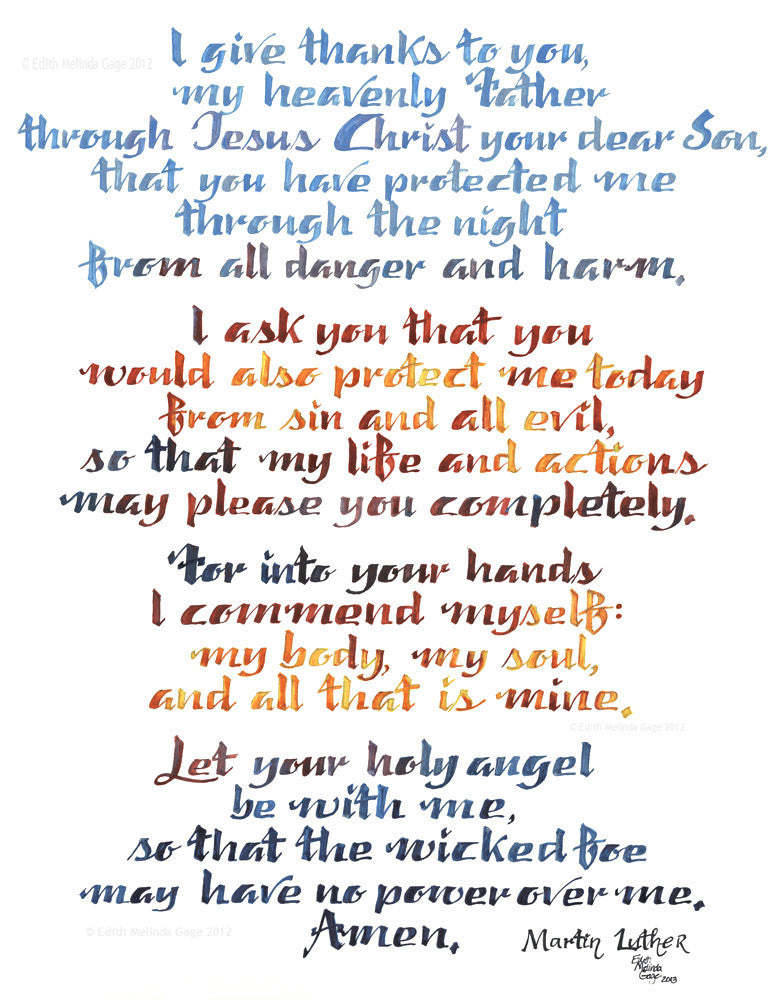 © Edith Melinda Gage 2012
I give thanks to you,
my heavenly Father
through Jesus Christ your dear Son,
that you have protected me
through the night
from all danger and harm.
I ask you that you
would also protect me today
from sin and all evil,
so that my life and actions
may please you completely.
For into your hands
I commend myself:
my body, my soul,
and all that is mine.
© Edith Melinda Gage 2012
Let your holy angel
be with me,
so that the wicked foe
may have no power over me.
© Edith Melinda Gage 2012
Amen.
Martin Luther
Edith
Melinda
Gage 2013